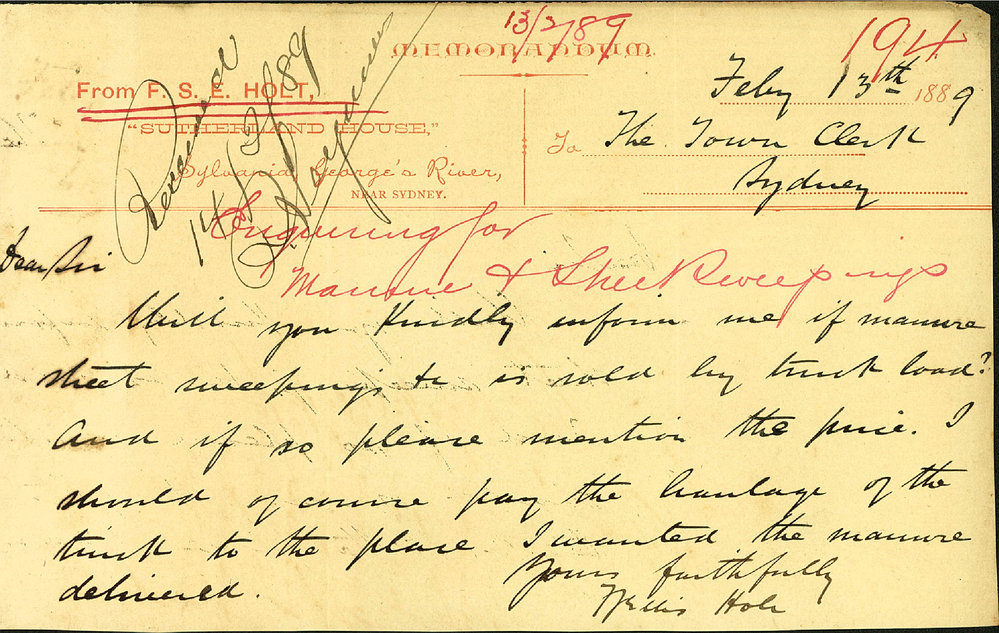 13/2/89
194
MEMORANDUM.
From F. S. E. HOLT,
"SUTHERLAND HOUSE,"
Sylvania, George's River,
NEAR SYDNEY.
Feby 13th 1889
To The Town Clerk
Sydney
Received
14/2/89
Enquiring for
Manure & Street Sweepings
Dear Sir
Will you kindly inform me if manure
street sweepings &c is sold by truck load?
And if so please mention the price. I
should of course pay the haulage of the
truck to the place I wanted the manure
delivered.
Yours faithfully
Holt